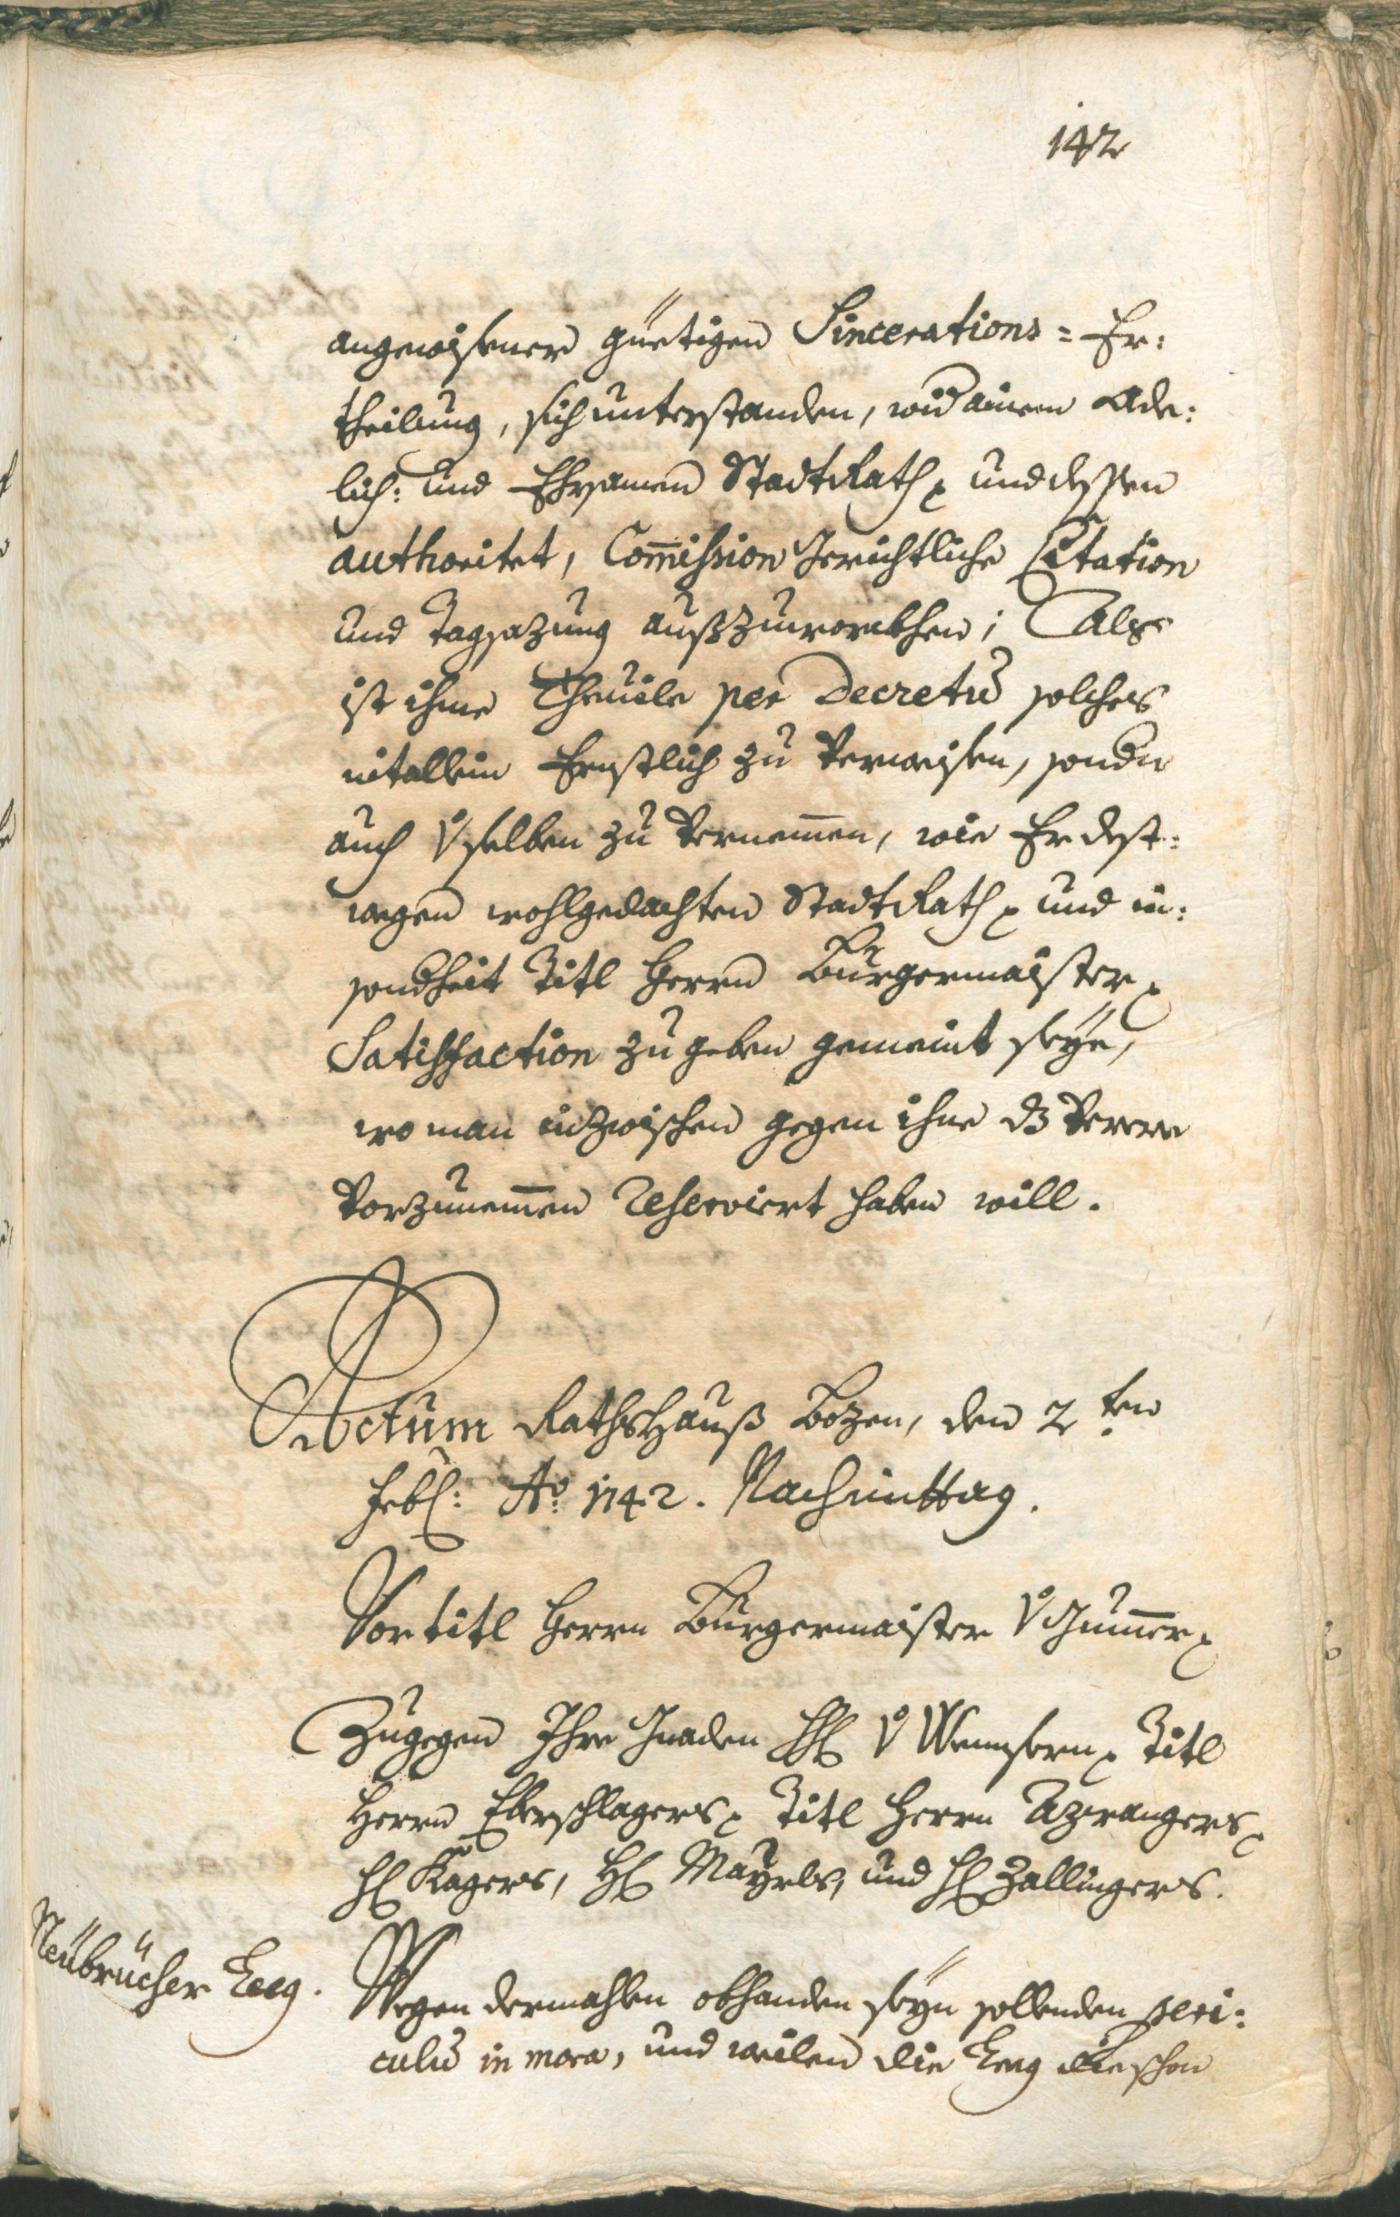 142
angewisener güetigen Sincerations-Er:
theilung, sich unterstanden, wid ainem Ade:
lich: und Ehrsamen StadtRath und dessen
authoritet, Com̅ission Gerichtliche Citation
und Tagsazung auszuwürckhen; Als
ist ihme Theuile per Decretu̅ solches
nit allein Ernstlich zu verweisen, sondn
auch v̊ selben zu vernem̅en, wie Er dest:
wegen wohlgedachten StadtRath und in:
sondheit Titl Herrn Burgermaister
Satisfaction zu geben gemeint seye,
wo man inzwischen gegen ihne dz
vorzunem̅en reserviert haben will.
Actum RathsHauß Bozen, den 2ten
Febr: Ao 1742. Nachmittag.
Vor titl Herrn Burgermaister v̊ Gum̅er
Zugegen Ihro Gnaden H v̊ Titl
Herrn Eberschlagers Titl Herrn Azwangers
H Kagers, H Mayrls, und H Zallingers.
Neübrücher
Wegen dermahlen obhanden seyn sollenden peri:
culu̅ in mora, und weilen die schon